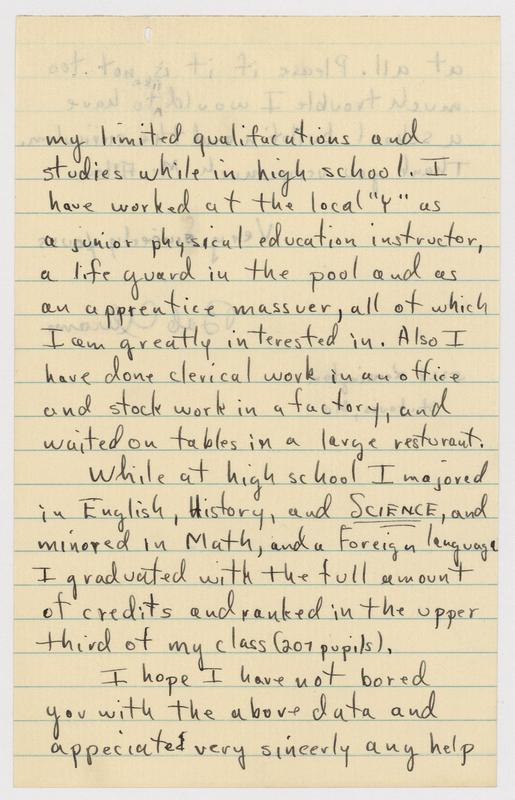 my limited qualifacations and
studies while in high school. I
have worked at the local "Y" as
a junior physical education instructor,
a life guard in the pool and as
an apprentice massuer, all of which
I am greatly interested in. Also I
have done clerical work in an office
and stock work in a factory, and
waited on tables in a large resturant.
While at high school I majored
in English, History, and SCIENCE, and
minored in Math, and a Foreign language
I graduated with the full amount
of credits and ranked in the upper
third of my class (207 pupils).
I hope I have not bored
you with the above data and
appeciated very sincerly any help